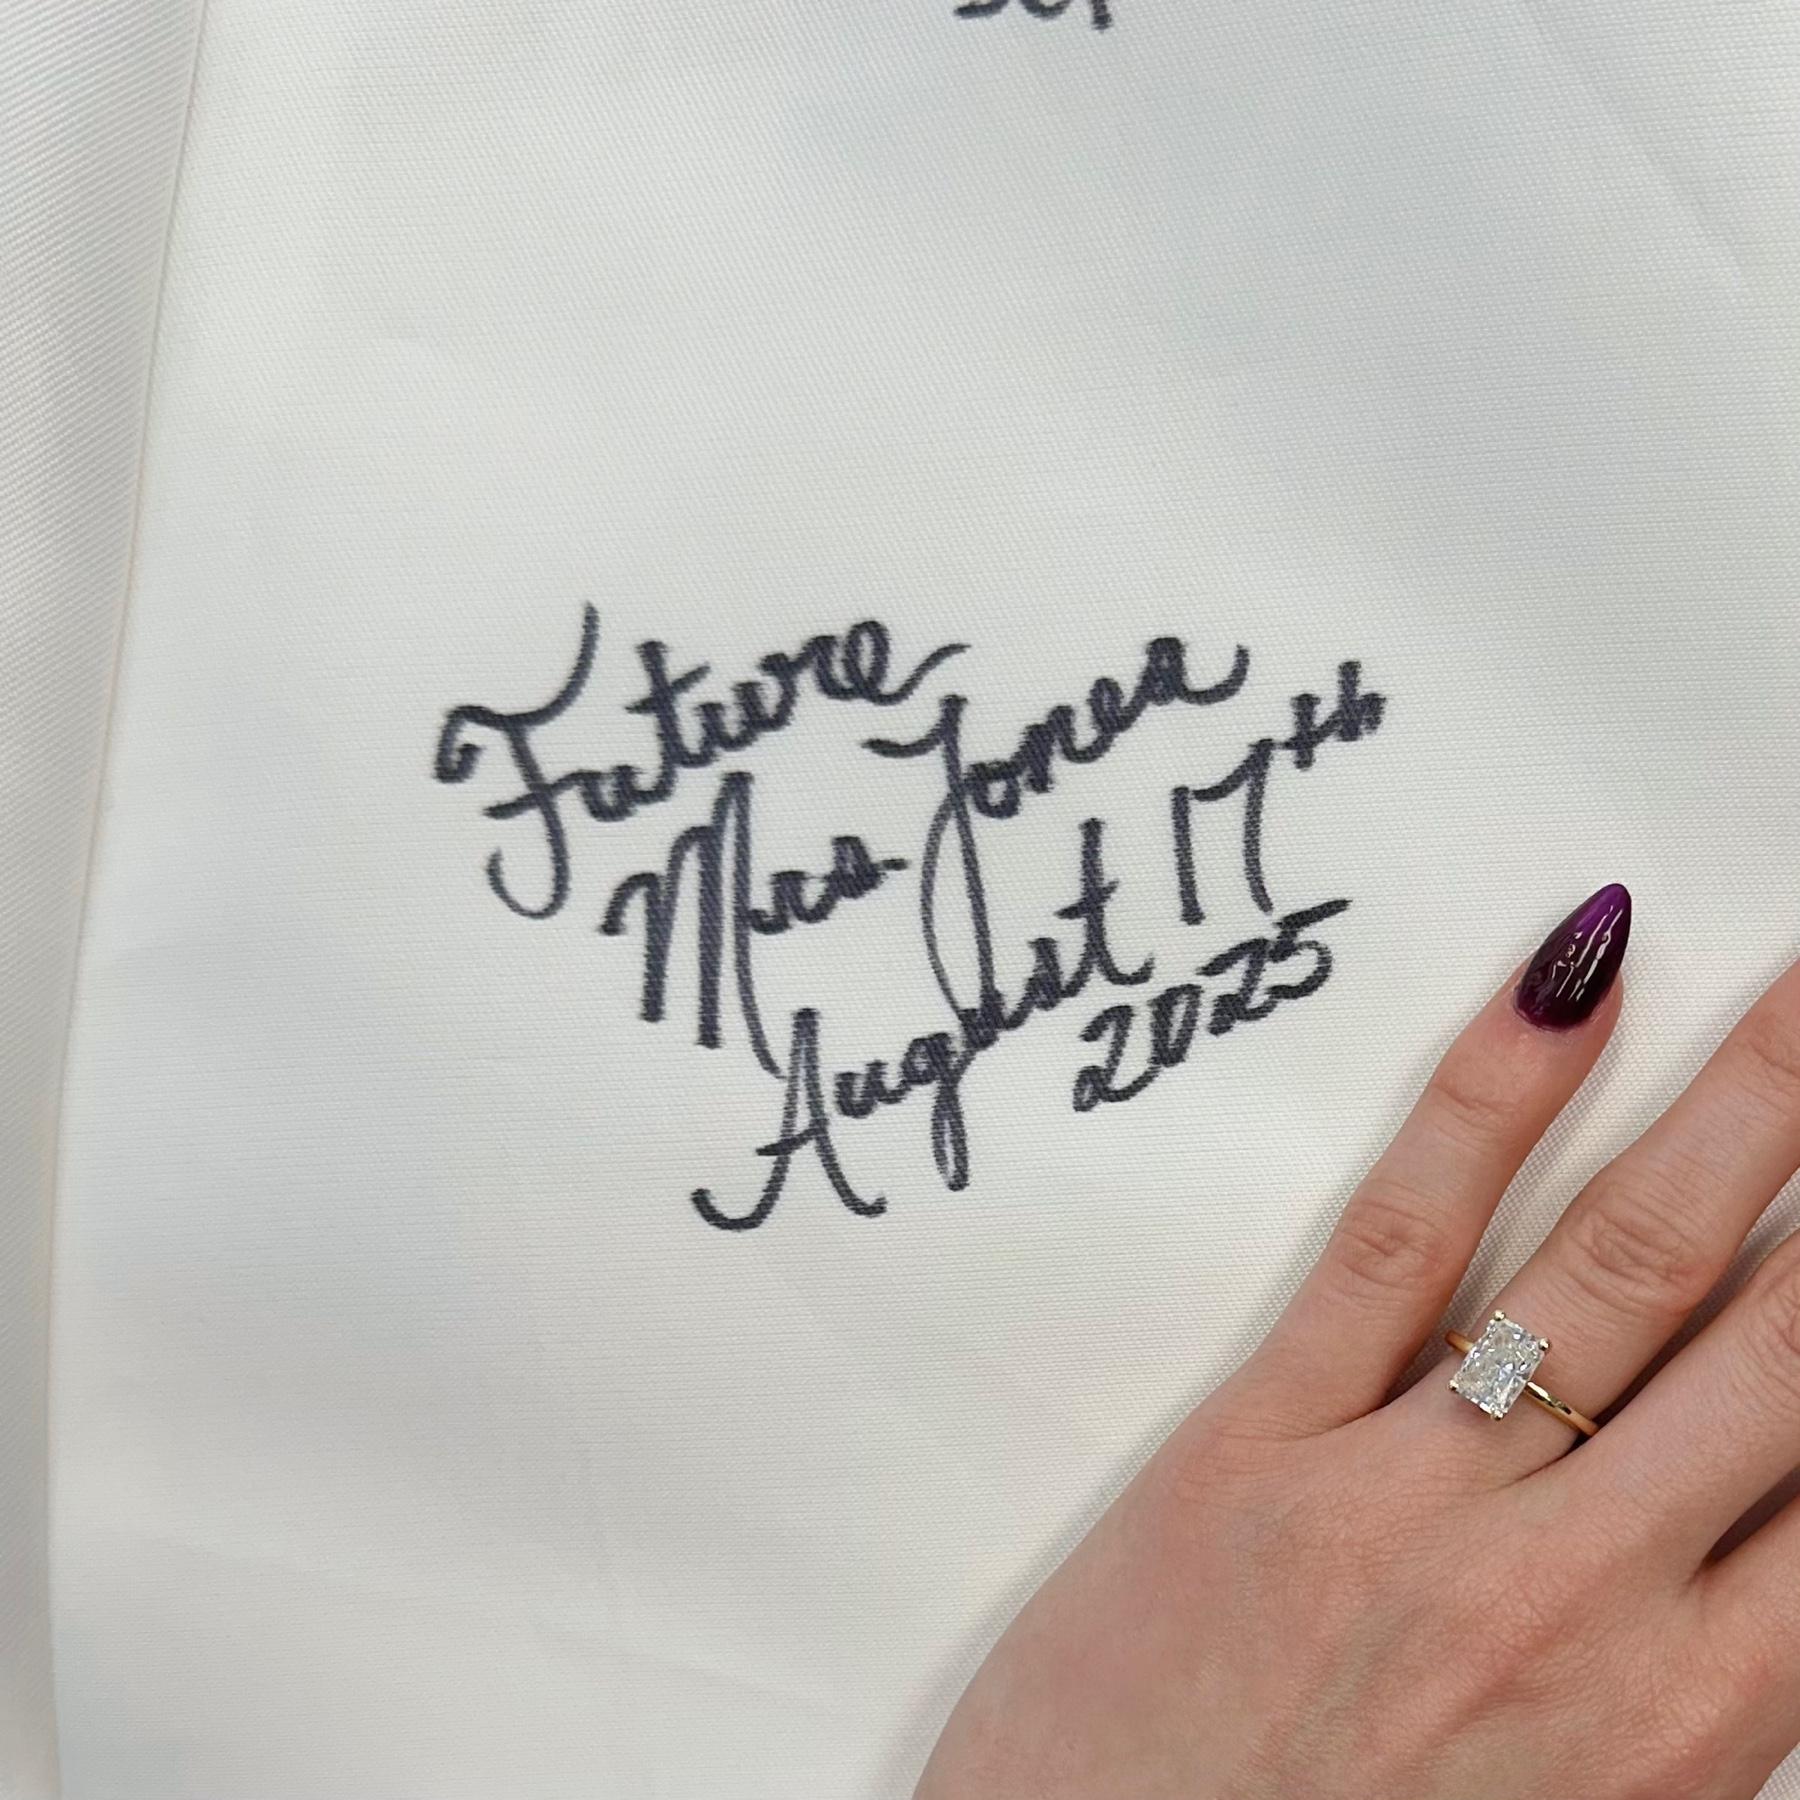 Future
Mrs. Jones
August 17th
2025